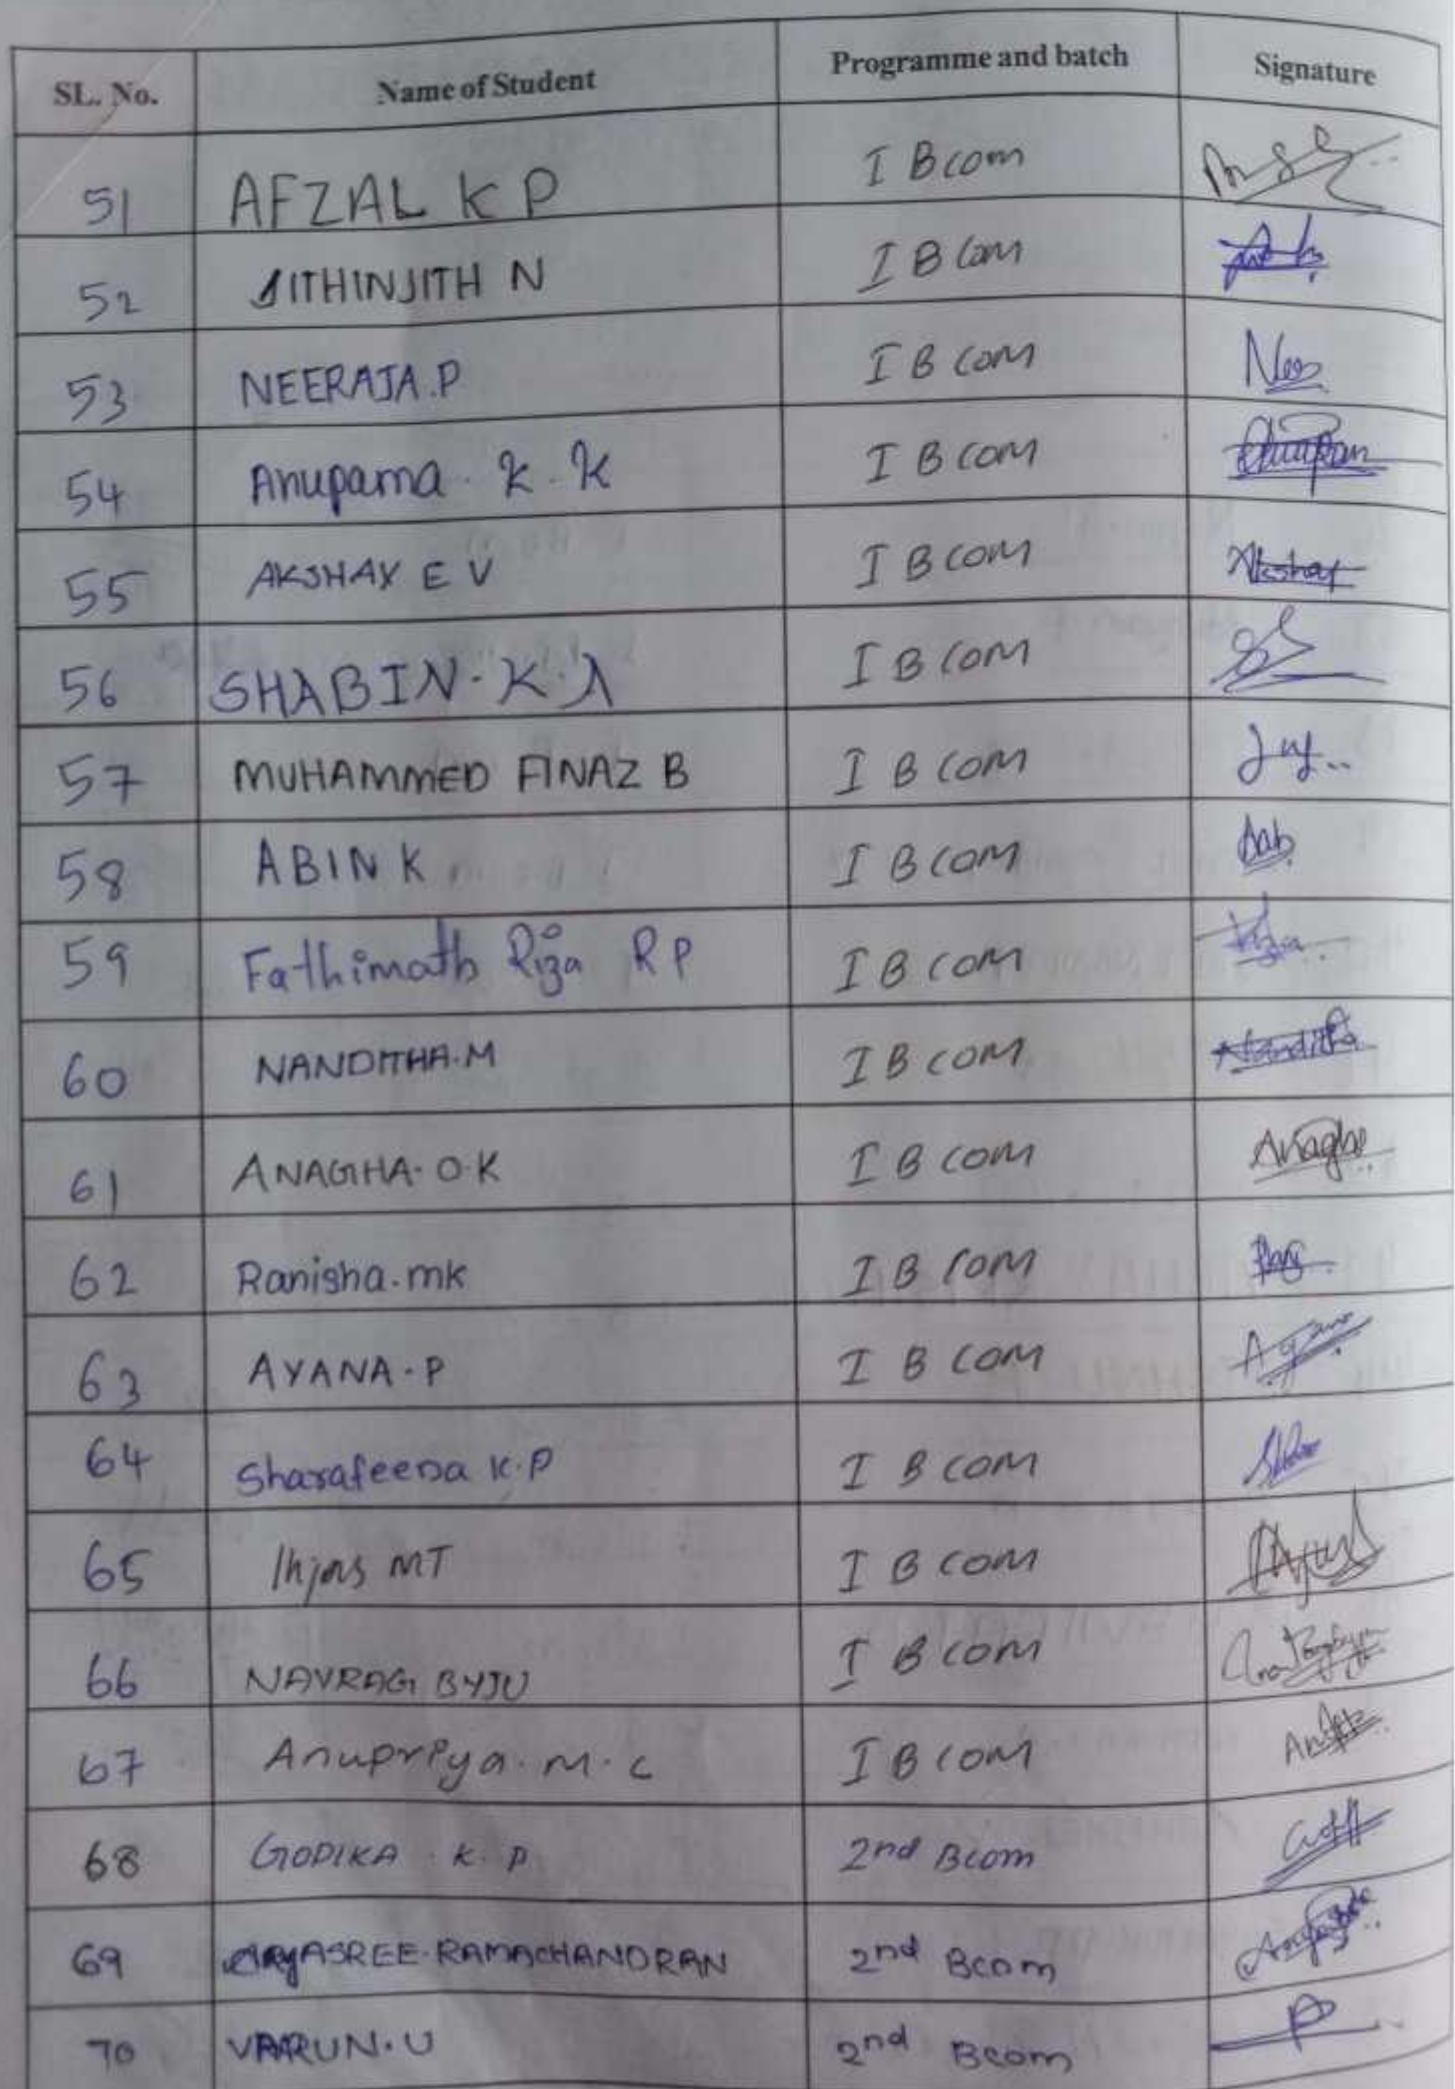 SL. No. Name of Student Programme and batch Signature
51 AFZAL K P I Bcom
52 JITHINJITH N I B Com
53 NEERAJA.P I B COM Nee
54 Anupama . K . K I B COM
55 AKSHAY E V I B COM Akshay
56 SHABIN. K. I B COM
57 MUHAMMED FINAZ B I B COM
58 ABIN K I B COM
59 Fathimath Riza R P I B COM
60 NANDITHA.M I B COM Nanditha
61 ANAGHA. O.K I B COM Anagha
62 Ranisha.mk I B COM
63 AYANA.P I B COM
64 Sharafeena K.P I B COM
65 MT I B COM
66 NAVRAG BYJU I B COM
67 Anupriya. M. C I B COM
68 GOPIKA . K. P 2nd Bcom
69 RAMACHANDRAN 2nd Bcom
70 VARUN.U 2nd Bcom